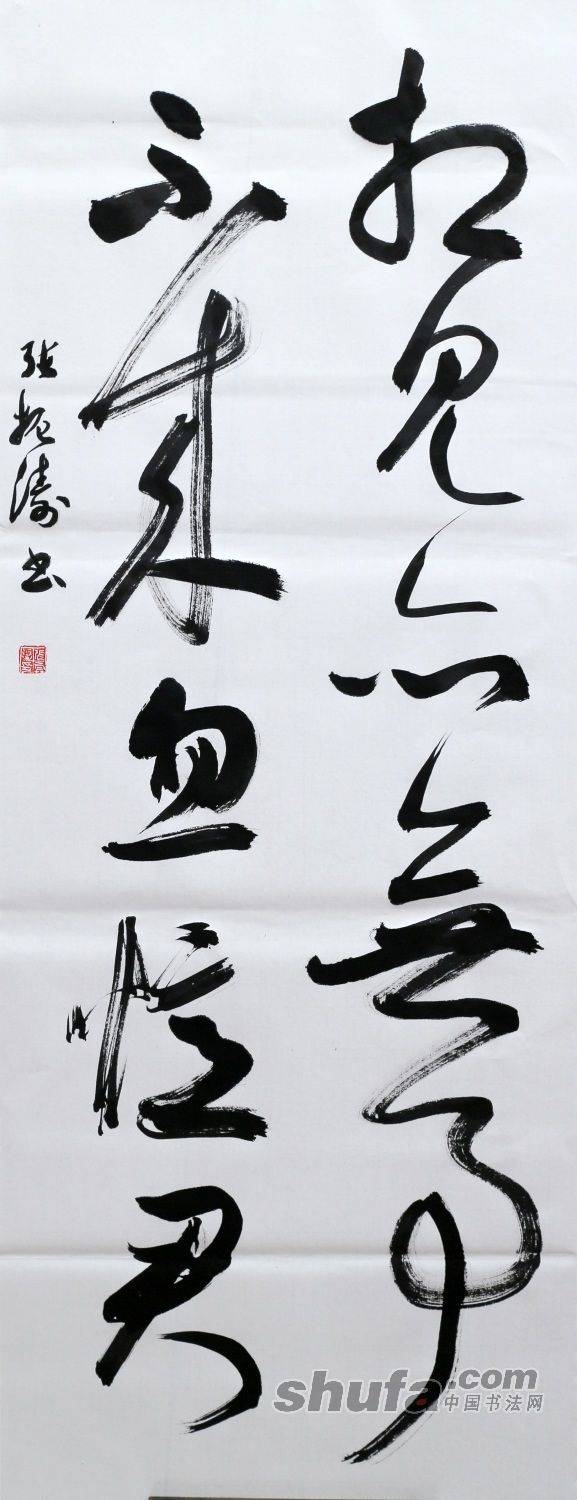 相见亦无事
不来忽忆君
张振涛书
shufa.com
中国书法网